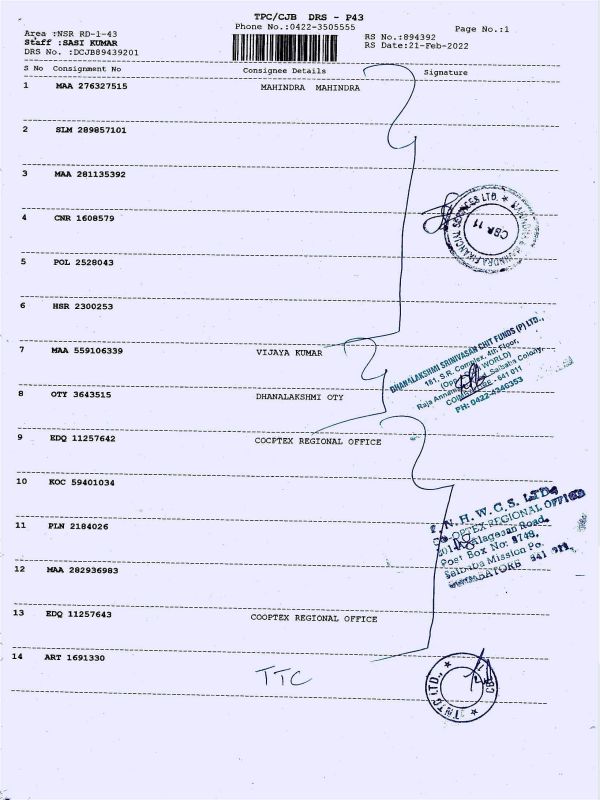 TPC/CJB DRS - P43
Phone No.:0422-3505555
Page No.:1
Area :NSR RD-1-43
Staff :SASI KUMAR
DRS No. :DCJB89439201
RS No.:894392
RS Date:21-Feb-2022
S No Consignment No Consignee Details Signature
1 MAA 276327515 MAHINDRA MAHINDRA
2 SLM 289857101
3 MAA 281135392
4 CNR 1608579
MAHINDRA & MAHINDRA FINANCIAL SERVICES LTD. ★
CBA 11
5 POL 2528043
6 HSR 2300253
7 MAA 559106339 VIJAYA KUMAR
DHANALAKSHMI SRINIVASAN CHIT FUNDS (P) LTD.,
181, S.R. Complex, 4th Floor,
WORLD)
Raja Saibaba Colony,
641 011
PH: 0422-4346353
8 OTY 3643515 DHANALAKSHMI OTY
9 EDQ 11257642 COCPTEX REGIONAL OFFICE
10 KOC 59401034
N. H. W. C. S. LTD.
OPTEX-REGIONAL OFFICE
Road,
Post Box No:
Saibaba Mission Po.
11 PLN 2184026
12 MAA 282936983
13 EDQ 11257643 COOPTEX REGIONAL OFFICE
14 ART 1691330
TTC